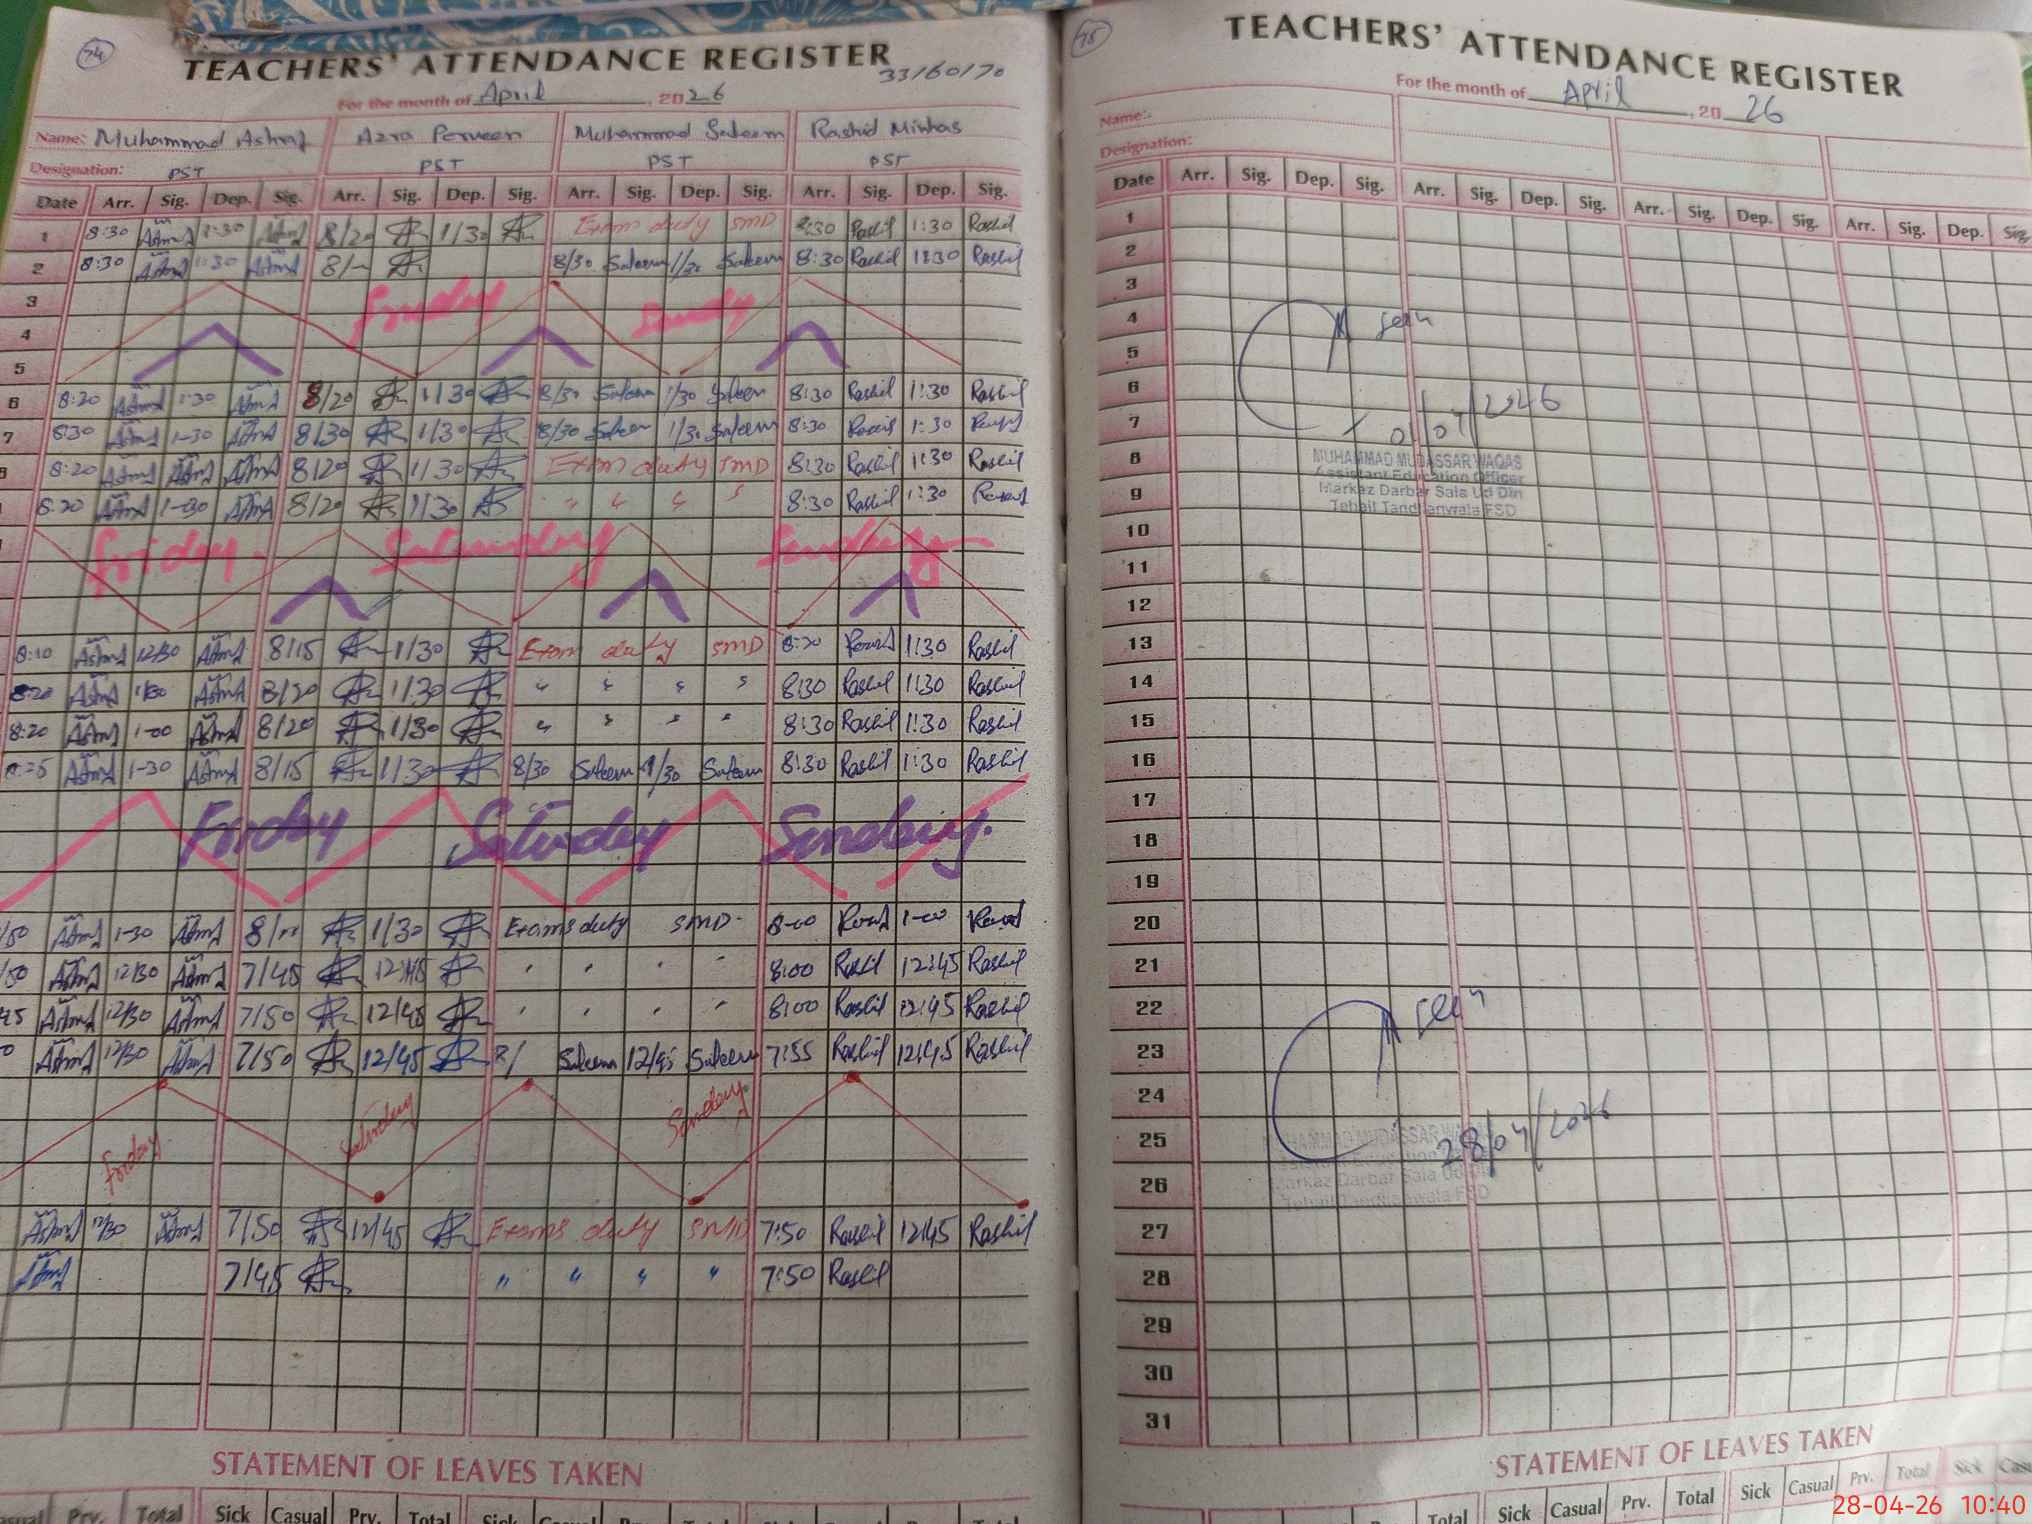 74
TEACHERS' ATTENDANCE REGISTER
33/60/70
For the month of April, 2026
Name: Muhammad Ashraf Azra Perveen Muhammad Saleem Rashid Minhas
Designation: PST PST PST PST
Date Arr. Sig. Dep. Sig. Arr. Sig. Dep. Sig. Arr. Sig. Dep. Sig. Arr. Sig. Dep. Sig.
1 8:30 1:30 8/20 1/30 Exam duty SMD 8:30 Rashid 1:30 Rashid
2 8:30 1:30 8/ 8/30 Saleem 1/30 Saleem 8:30 Rashid 1:30 Rashid
3
4
5
6 8:20 1:30 8/20 1/30 8/30 Saleem 1/30 Saleem 8:30 Rashid 1:30 Rashid
7 8:30 1-30 8/30 1/30 8/30 Saleem 1/30 Saleem 8:30 1:30
8 8:20 8/20 1/30 Exam duty SMD 8:30 Rashid 1:30 Rashid
8:20 1-30 8/20 1/30 " " " " 8:30 Rashid 1:30
Friday Saturday Sunday
8:10 12/30 8/15 1/30 Exam duty SMD 8:20 1:30 Rashid
8:20 1/30 8/20 1/30 " " " " 8:30 Rashid 1:30 Rashid
8:20 1-00 8/20 1/30 " " " " 8:30 Rashid 1:30 Rashid
1-30 8/15 1/30 8/30 Saleem 1/30 Saleem 8:30 Rashid 1:30 Rashid
Friday Saturday Sunday.
/50 1-30 8/ 1/30 Exams duty SMD 8-00 1-00
/50 12/30 7/45 12/45 8:00 Rashid 12:45 Rashid
45 12/30 7/50 12/45 8:00 Rashid 12:45 Rashid
12/30 7/50 12/45 8/ Saleem 12/45 Saleem 7:55 Rashid 12:45 Rashid
Friday Saturday Sunday
12/30 7/50 12/45 Exams duty SMD 7:50 Rashid 12:45 Rashid
7/45 " " " " 7:50 Rashid
STATEMENT OF LEAVES TAKEN
Prv. Total Sick Casual Prv. Total Sick
75
TEACHERS' ATTENDANCE REGISTER
For the month of April, 2026
Name:
Designation:
Date Arr. Sig. Dep. Sig. Arr. Sig. Dep. Sig. Arr. Sig. Dep. Sig. Arr. Sig. Dep. Sig.
1
2
3
4 seen
5
6
7 01/04/2026
8 MUHAMMAD MUDASSAR WAQAS
Assistant Education Officer
9 Markaz Darbar Sala Ud Din
Tehsil Tandlianwala FSD
10
11
12
13
14
15
16
17
18
19
20
21
22 seen
23
24
25 MUHAMMAD MUDASSAR WAQAS 28/04/2026
Assistant Education Officer
26 Markaz Darbar Sala Ud Din
Tehsil Tandlianwala FSD
27
28
29
30
31
STATEMENT OF LEAVES TAKEN
Total Sick Casual Prv. Total Sick Casual Prv. Total Sick
28-04-26 10:40